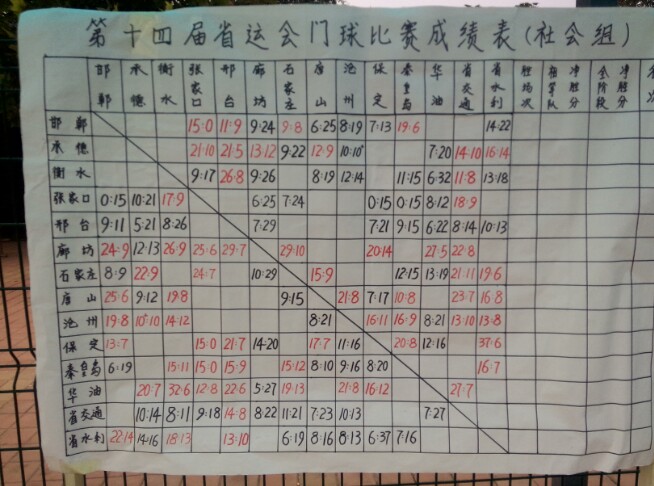 第十四届省运会门球比赛成绩表(社会组)
邯郸 承德 衡水 张家口 邢台 廊坊 石家庄 唐山 沧州 保定 秦皇岛 华油 省交通 省水利 胜场次 净胜分 全阶段 净胜分 名次
邯郸 15:0 11:9 9:24 9:8 6:25 8:19 7:13 19:6 14:22
承德 21:10 21:5 13:12 9:22 12:9 10:10 7:20 14:10 16:14
衡水 9:17 26:8 9:26 8:19 12:14 11:15 6:32 11:8 13:18
张家口 0:15 10:21 17:9 6:25 7:24 0:15 0:15 8:12 18:9
邢台 9:11 5:21 8:26 7:29 7:21 9:15 6:22 8:14 10:13
廊坊 24:9 12:13 26:9 25:6 29:7 29:10 20:14 27:5 22:8
石家庄 8:9 22:9 24:7 10:29 15:9 12:15 13:19 21:11 19:6
唐山 25:6 9:12 19:8 9:15 21:8 7:17 10:8 23:7 16:8
沧州 19:8 10:10 14:12 8:21 16:11 16:9 8:21 13:10 13:8
保定 13:7 15:0 21:7 14:20 17:7 11:16 20:8 12:16 37:6
秦皇岛 6:19 15:11 15:0 15:9 15:12 8:10 9:16 8:20 16:7
华油 20:7 32:6 12:8 22:6 5:27 19:13 21:8 16:12 27:7
省交通 10:14 8:11 9:18 14:8 8:22 11:21 7:23 10:13 7:27
省水利 22:14 14:16 18:13 13:10 6:19 8:16 8:13 6:37 7:16